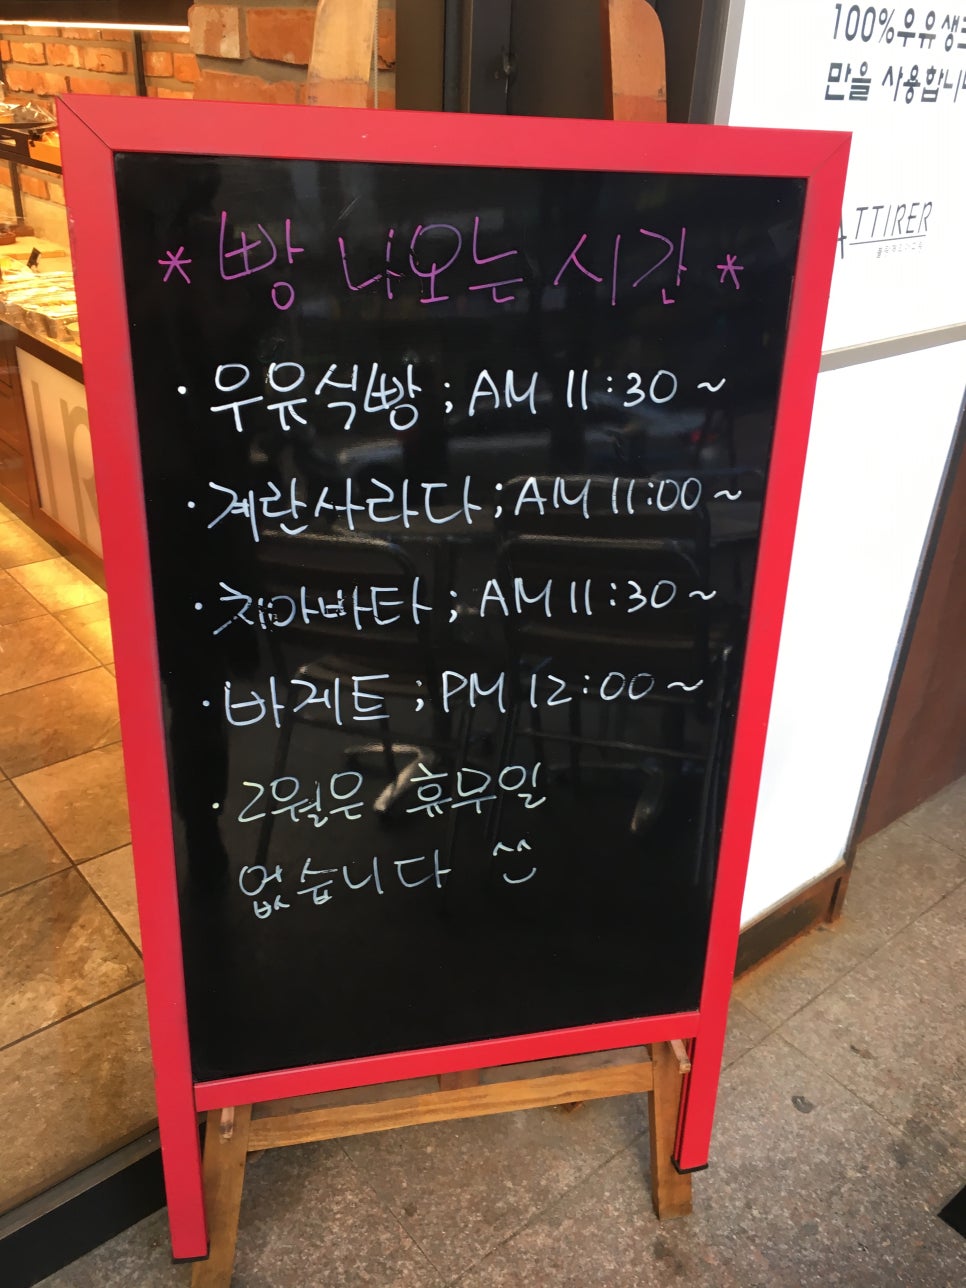 * 빵 나오는 시간 *
· 우유식빵 ; AM 11:30 ~
· 계란사라다 ; AM 11:00 ~
· 치아바타 ; AM 11:30 ~
· 바게트 ; PM 12:00 ~
· 2월은 휴무일
없습니다 ^^
100%우유
만을 사용합니
ATTIRER